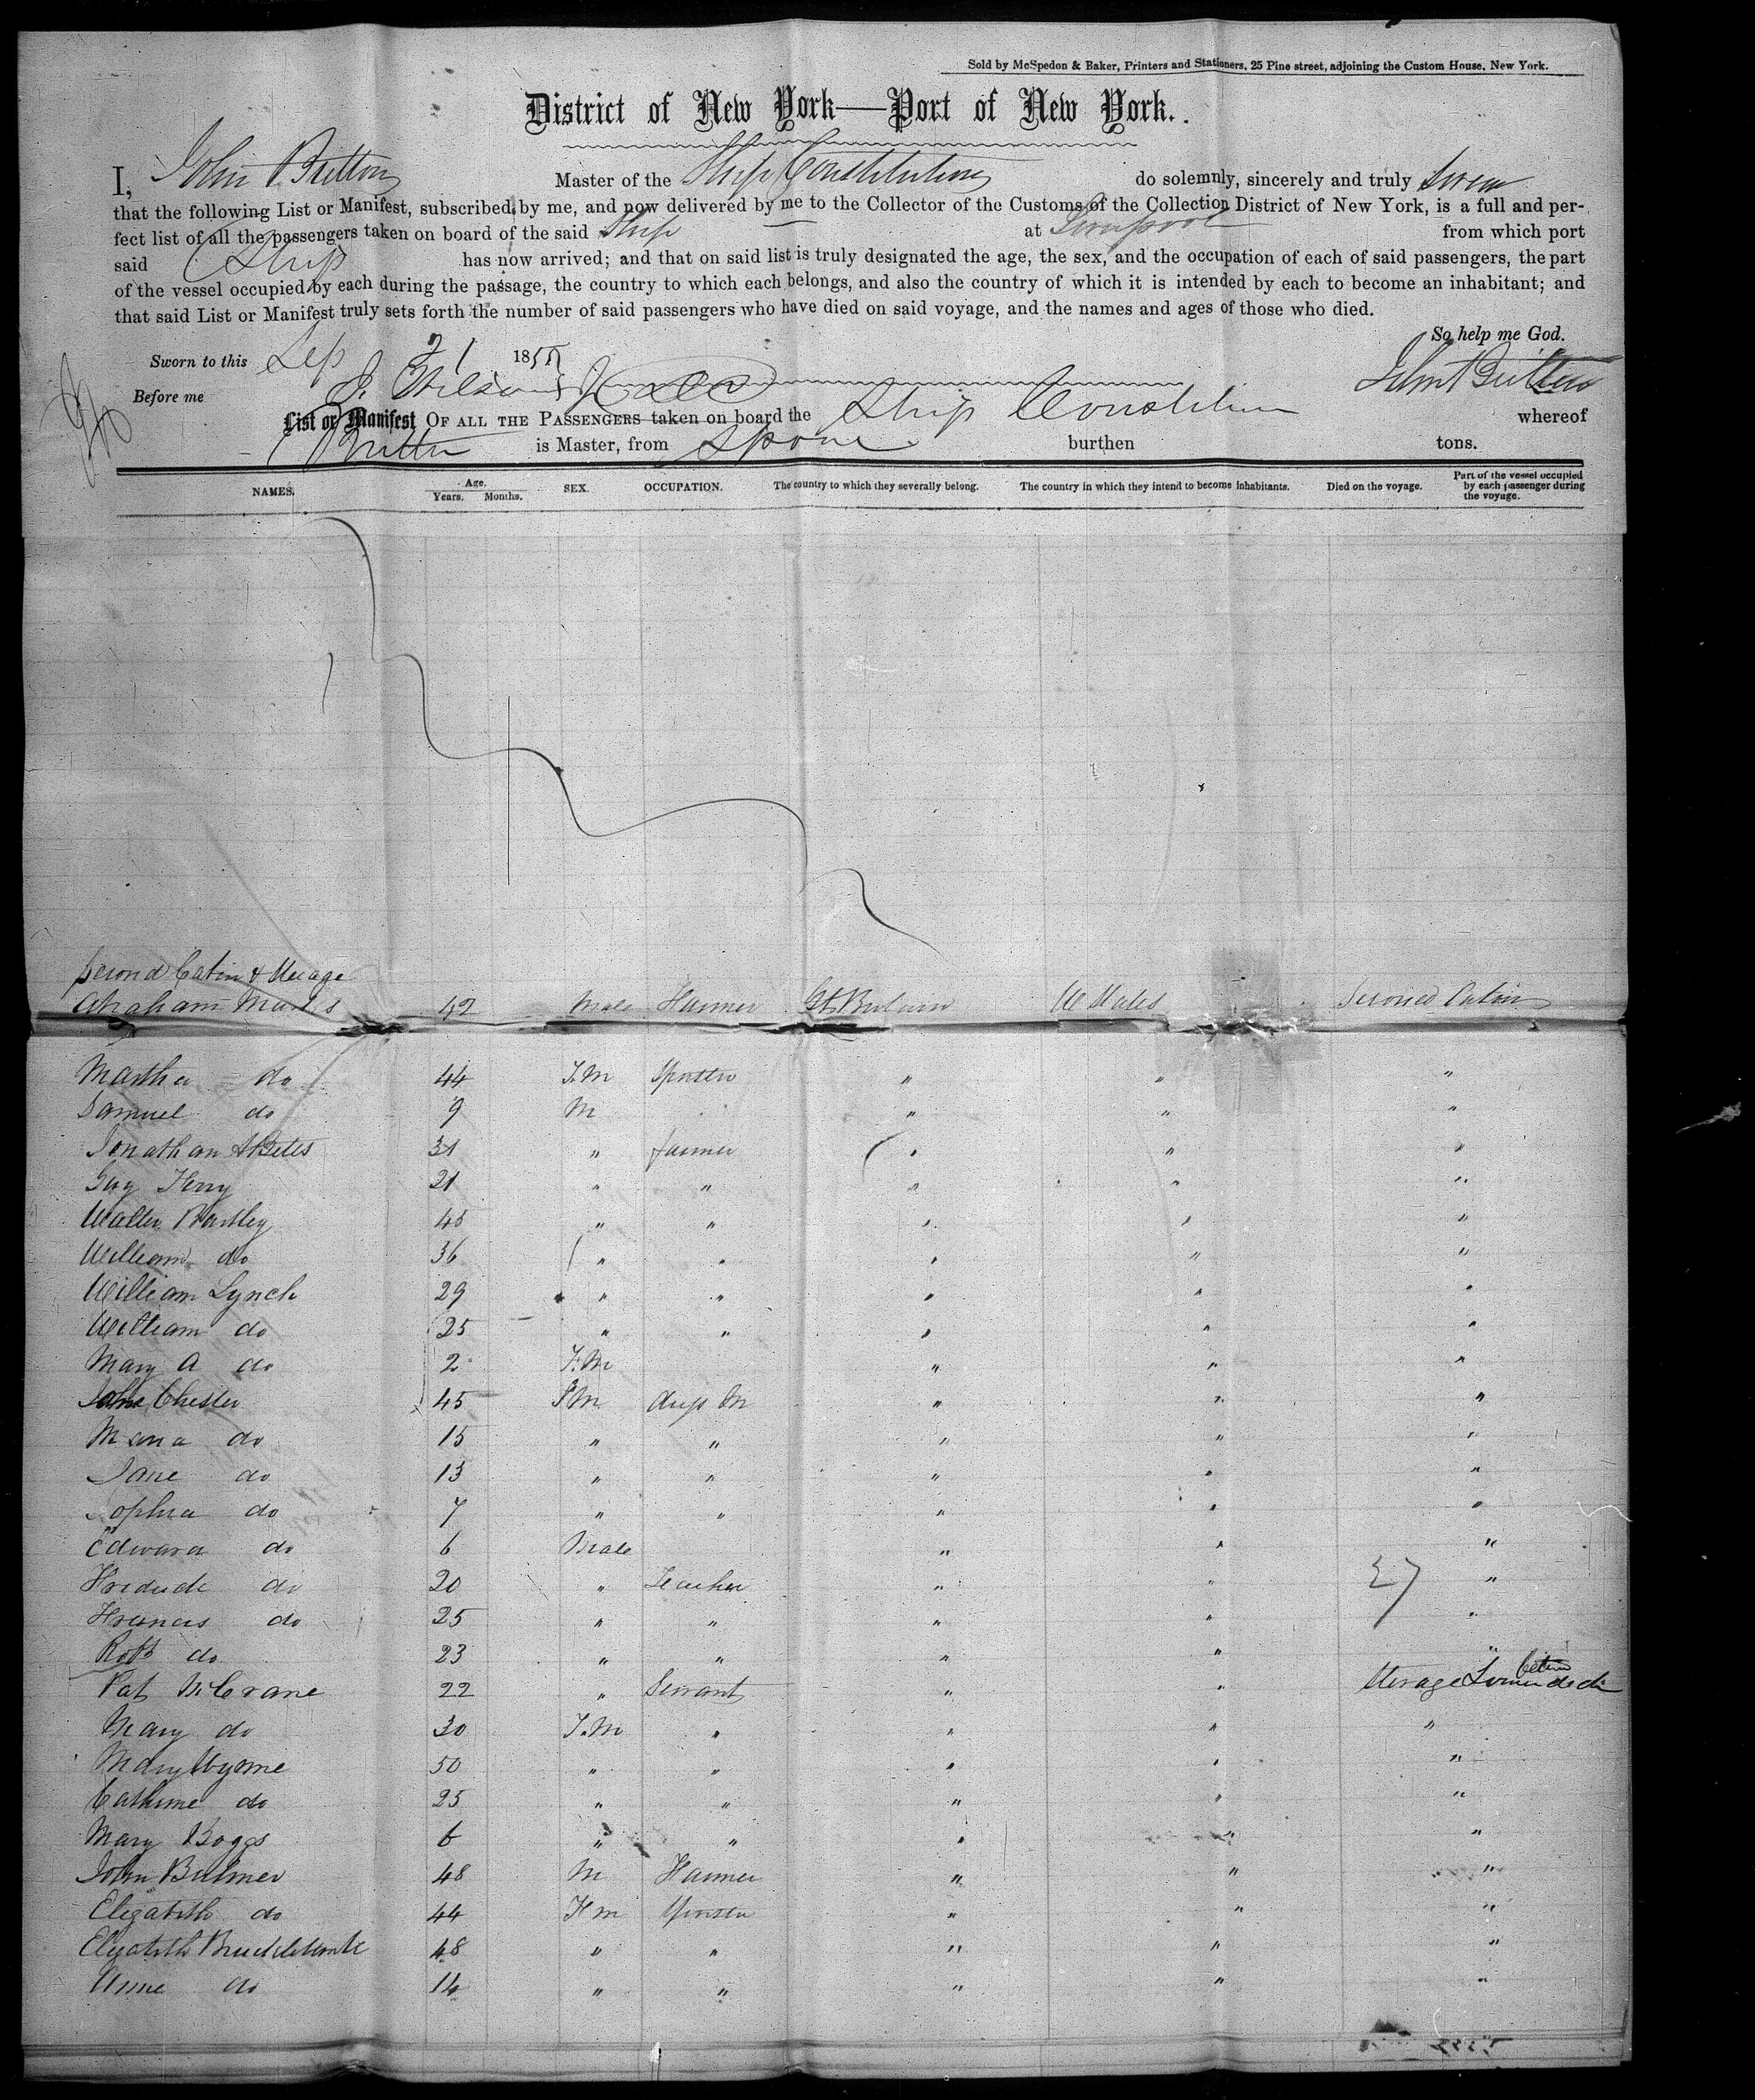 Sold by McSpedon & Baker, Printers and Stationers, 25 Pine street, adjoining the Custom House, New York.
District of New York—Port of New York.
I, John Britton Master of the Ship Constitution do solemnly, sincerely and truly swear
that the following List or Manifest, subscribed by me, and now delivered by me to the Collector of the Customs of the Collection District of New York, is a full and per-
fect list of all the passengers taken on board of the said Ship at Liverpool from which port
said Ship has now arrived; and that on said list is truly designated the age, the sex, and the occupation of each of said passengers, the part
of the vessel occupied by each during the passage, the country to which each belongs, and also the country of which it is intended by each to become an inhabitant; and
that said List or Manifest truly sets forth the number of said passengers who have died on said voyage, and the names and ages of those who died.
So help me God.
Sworn to this Sep 21 18
John Britton
Before me
List or Manifest OF ALL THE PASSENGERS taken on board the Ship Constitution whereof
Britton is Master, from burthen tons.
NAMES. Age. Years. Months. SEX. OCCUPATION. The country to which they severally belong. The country in which they intend to become inhabitants. Died on the voyage. Part of the vessel occupied by each passenger during the voyage.
Second Cabin &
Abraham 42 Male Farmer Gt Britain U States Second Cabin
Martha do 44 F.M " " "
Samuel do 9 M " " "
Jonathan 31 " farmer " " "
Guy 21 " " " " "
Walter 45 " " " " "
William do 36 " " " " "
William Lynch 29 " " " " "
William do 25 " " " " "
Mary A do 2 F.M " " "
Chester 45 F M " " "
Maria do 15 " " " " "
Jane do 13 " " " " "
Sophia do 7 " " " " "
Edward do 6 Male " " "
do 20 " Teacher " " "
Francis do 25 " " " " "
Robt do 23 " " " " "
Pat McCrane 22 " Servant " " Sterage
Mary do 30 F.M " " " "
Mary Wynne 50 " " " " "
Catherine do 25 " " " " "
Mary Boggs 6 " " " " "
John Bulmer 48 M Farmer " " "
Elizabeth do 44 F m " " "
Elizabeth 48 " " " " "
Anne do 14 " " " " "